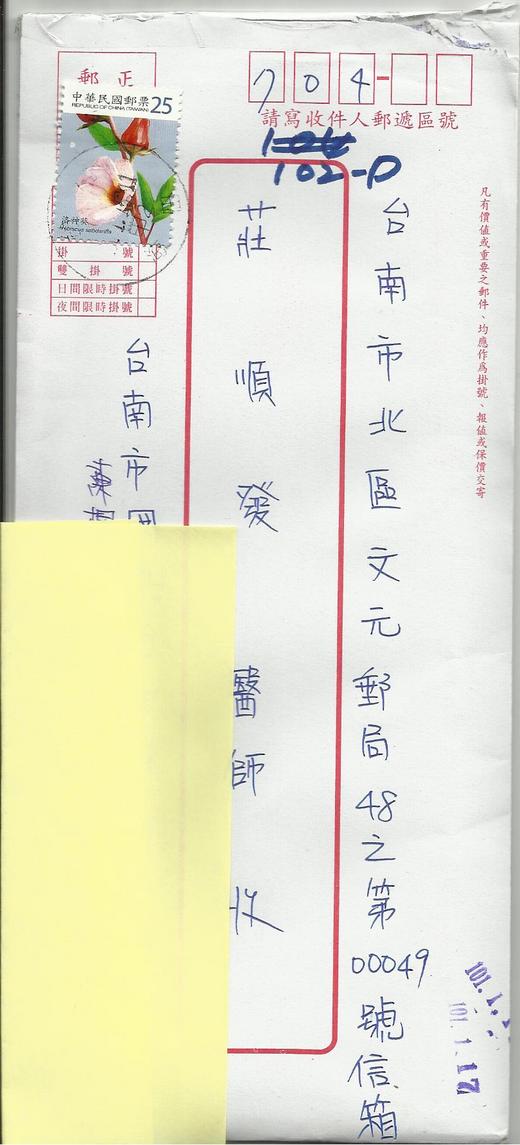 郵 正
中華民國郵票 25
REPUBLIC OF CHINA (TAIWAN)
洛神葵
Hibiscus sabdariffa
掛 號
雙 掛 號
日間限時掛號
夜間限時掛號
704-
請寫收件人郵遞區號
102-D
凡有價值或重要之郵件、均應作為掛號、報值或保價交寄
台南市北區文元郵局48之第00049號信箱
莊順發醫師收
台南市
101.1.
101.1.17